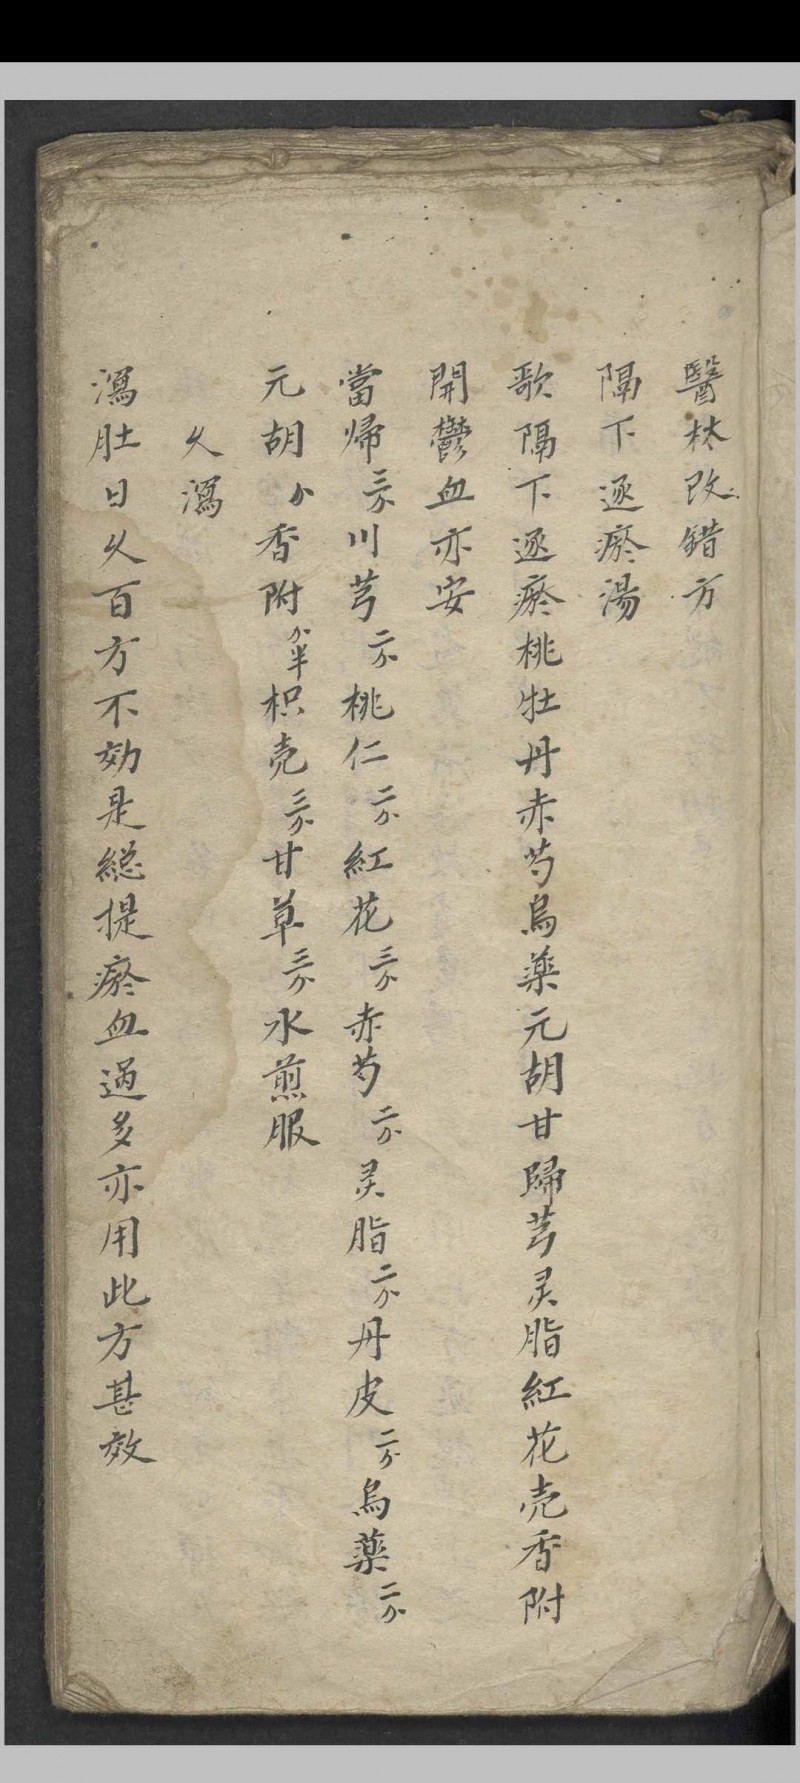 醫林改錯方
隔下逐瘀湯
歌隔下逐瘀桃牡丹赤芍烏藥元胡甘歸芎灵脂紅花壳香附
開鬱血亦安
當帰三分川芎二分桃仁二分紅花三分赤芍二分灵脂二分丹皮二分烏藥二分
元胡一分香附分半枳壳三分甘草三分水煎服
久瀉
瀉肚日久百方不効是総提瘀血過多亦用此方甚效